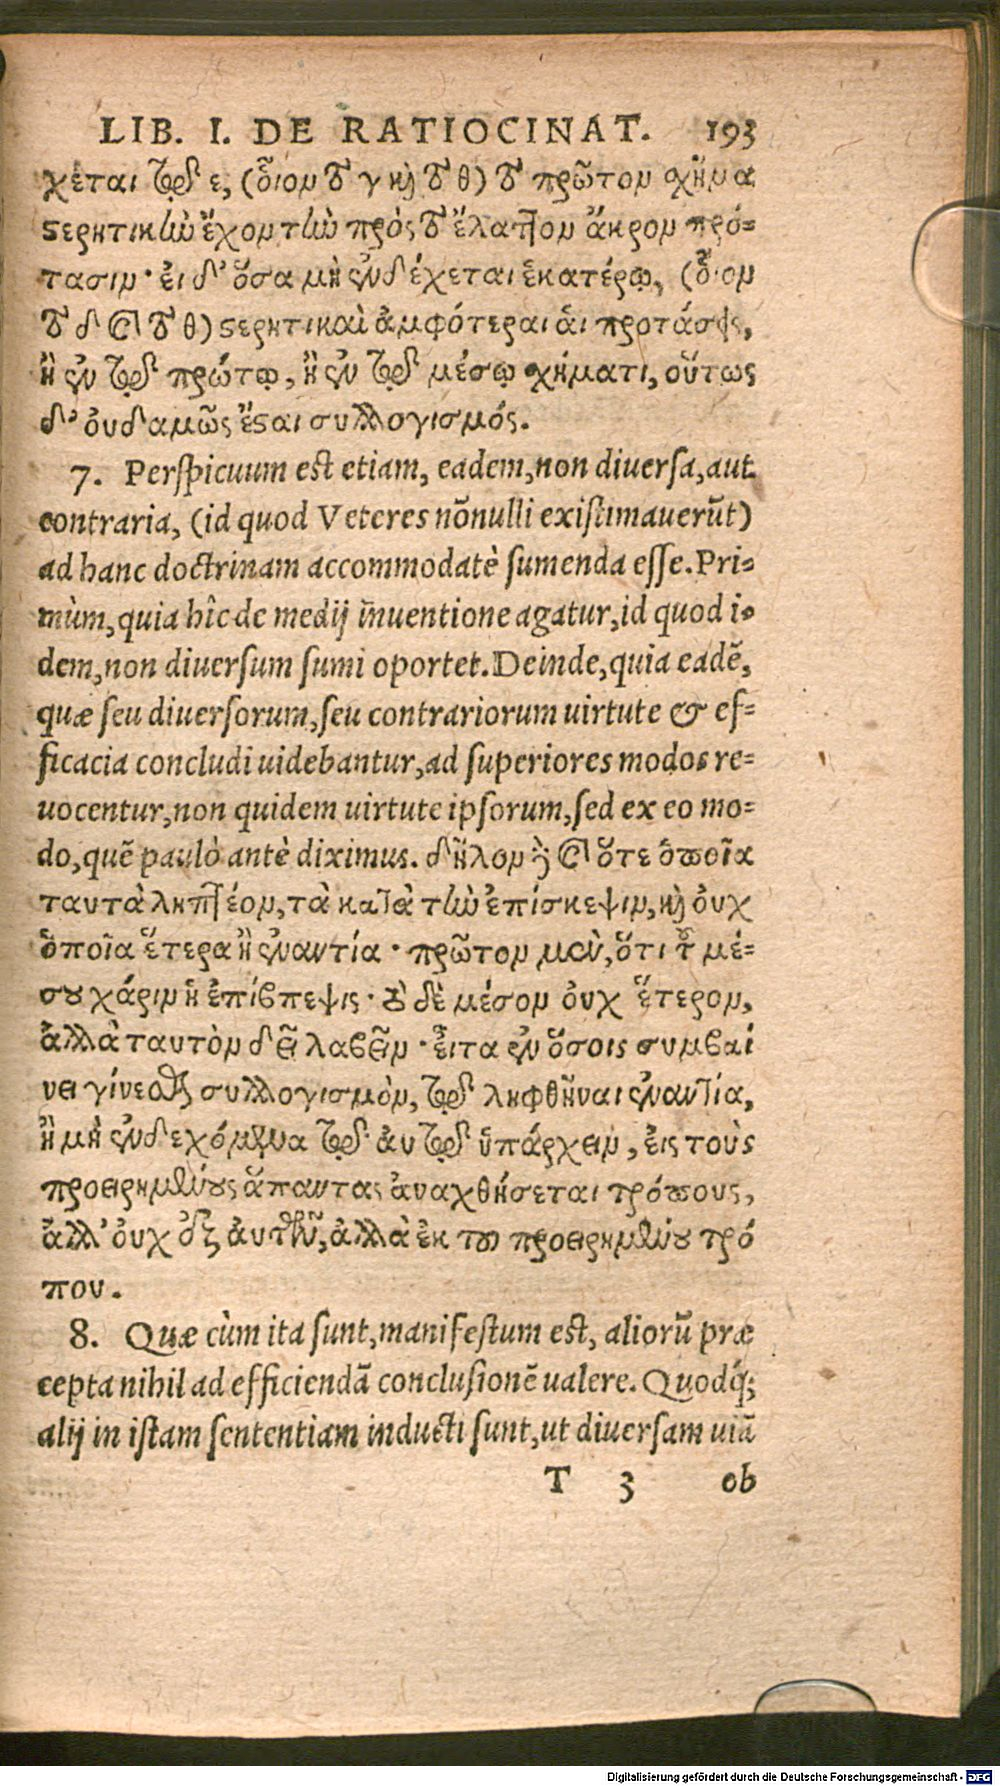 LIB. I. DE RATIOCINAT. 193
χεται τῷ ε, (οἷον τὸ γ καὶ τὸ θ) τὸ πρῶτον σχῆμα
στερητικὴν ἔχον τὴν πρὸς τὸ ἔλαττον ἄκρον πρό-
τασιν· εἰ δ' ὅσα μὴ ἐνδέχεται ἑκατέρῳ, (οἷον
τὸ δ καὶ τὸ θ) στερητικαὶ ἀμφότεραι αἱ προτάσεις,
ἢ ἐν τῷ πρώτῳ, ἢ ἐν τῷ μέσῳ σχήματι, οὕτως
δ' οὐδαμῶς ἔσται συλλογισμός.
7. Perspicuum est etiam, eadem, non diuersa, aut
contraria, (id quod Veteres nõnulli existimauerũt)
ad hanc doctrinam accommodatè sumenda esse. Pri-
mùm, quia hîc de medij inuentione agatur, id quod i-
dem, non diuersum sumi oportet. Deinde, quia eadẽ,
quæ seu diuersorum, seu contrariorum uirtute & ef-
ficacia concludi uidebantur, ad superiores modos re-
uocentur, non quidem uirtute ipsorum, sed ex eo mo-
do, quẽ paulò antè diximus. δῆλον δὲ καὶ ὅτε ὁποῖα
ταυτὰ ληπτέον, τὰ κατὰ τὴν ἐπίσκεψιν, καὶ οὐχ
ὁποῖα ἕτερα ἢ ἐναντία· πρῶτον μὲν, ὅτι τοῦ μέ-
σου χάριν ἡ ἐπίβπεψις· τὸ δὲ μέσον οὐχ ἕτερον,
ἀλλὰ ταυτὸν δεῖ λαβεῖν· εἶτα ἐν ὅσοις συμβαί
νει γίνεσθαι συλλογισμὸν, τῷ ληφθῆναι ἐναντία,
ἢ μὴ ἐνδεχόμενα τῷ αυτῷ ὑπάρχειν, εἰς τοὺς
προειρημένους ἅπαντας ἀναχθήσεται τρόπους,
ἀλλ' οὐχ ὅτι ἀυτῶν, ἀλλὰ ἐκ τοῦ προειρημένου τρό
που.
8. Quæ cùm ita sunt, manifestum est, aliorũ præ
cepta nihil ad efficiendã conclusionẽ ualere. Quodq́;
alij in istam sententiam inducti sunt, ut diuersam uiã
T 3 ob
Digitalisierung gefördert durch die Deutsche Forschungsgemeinschaft - DFG